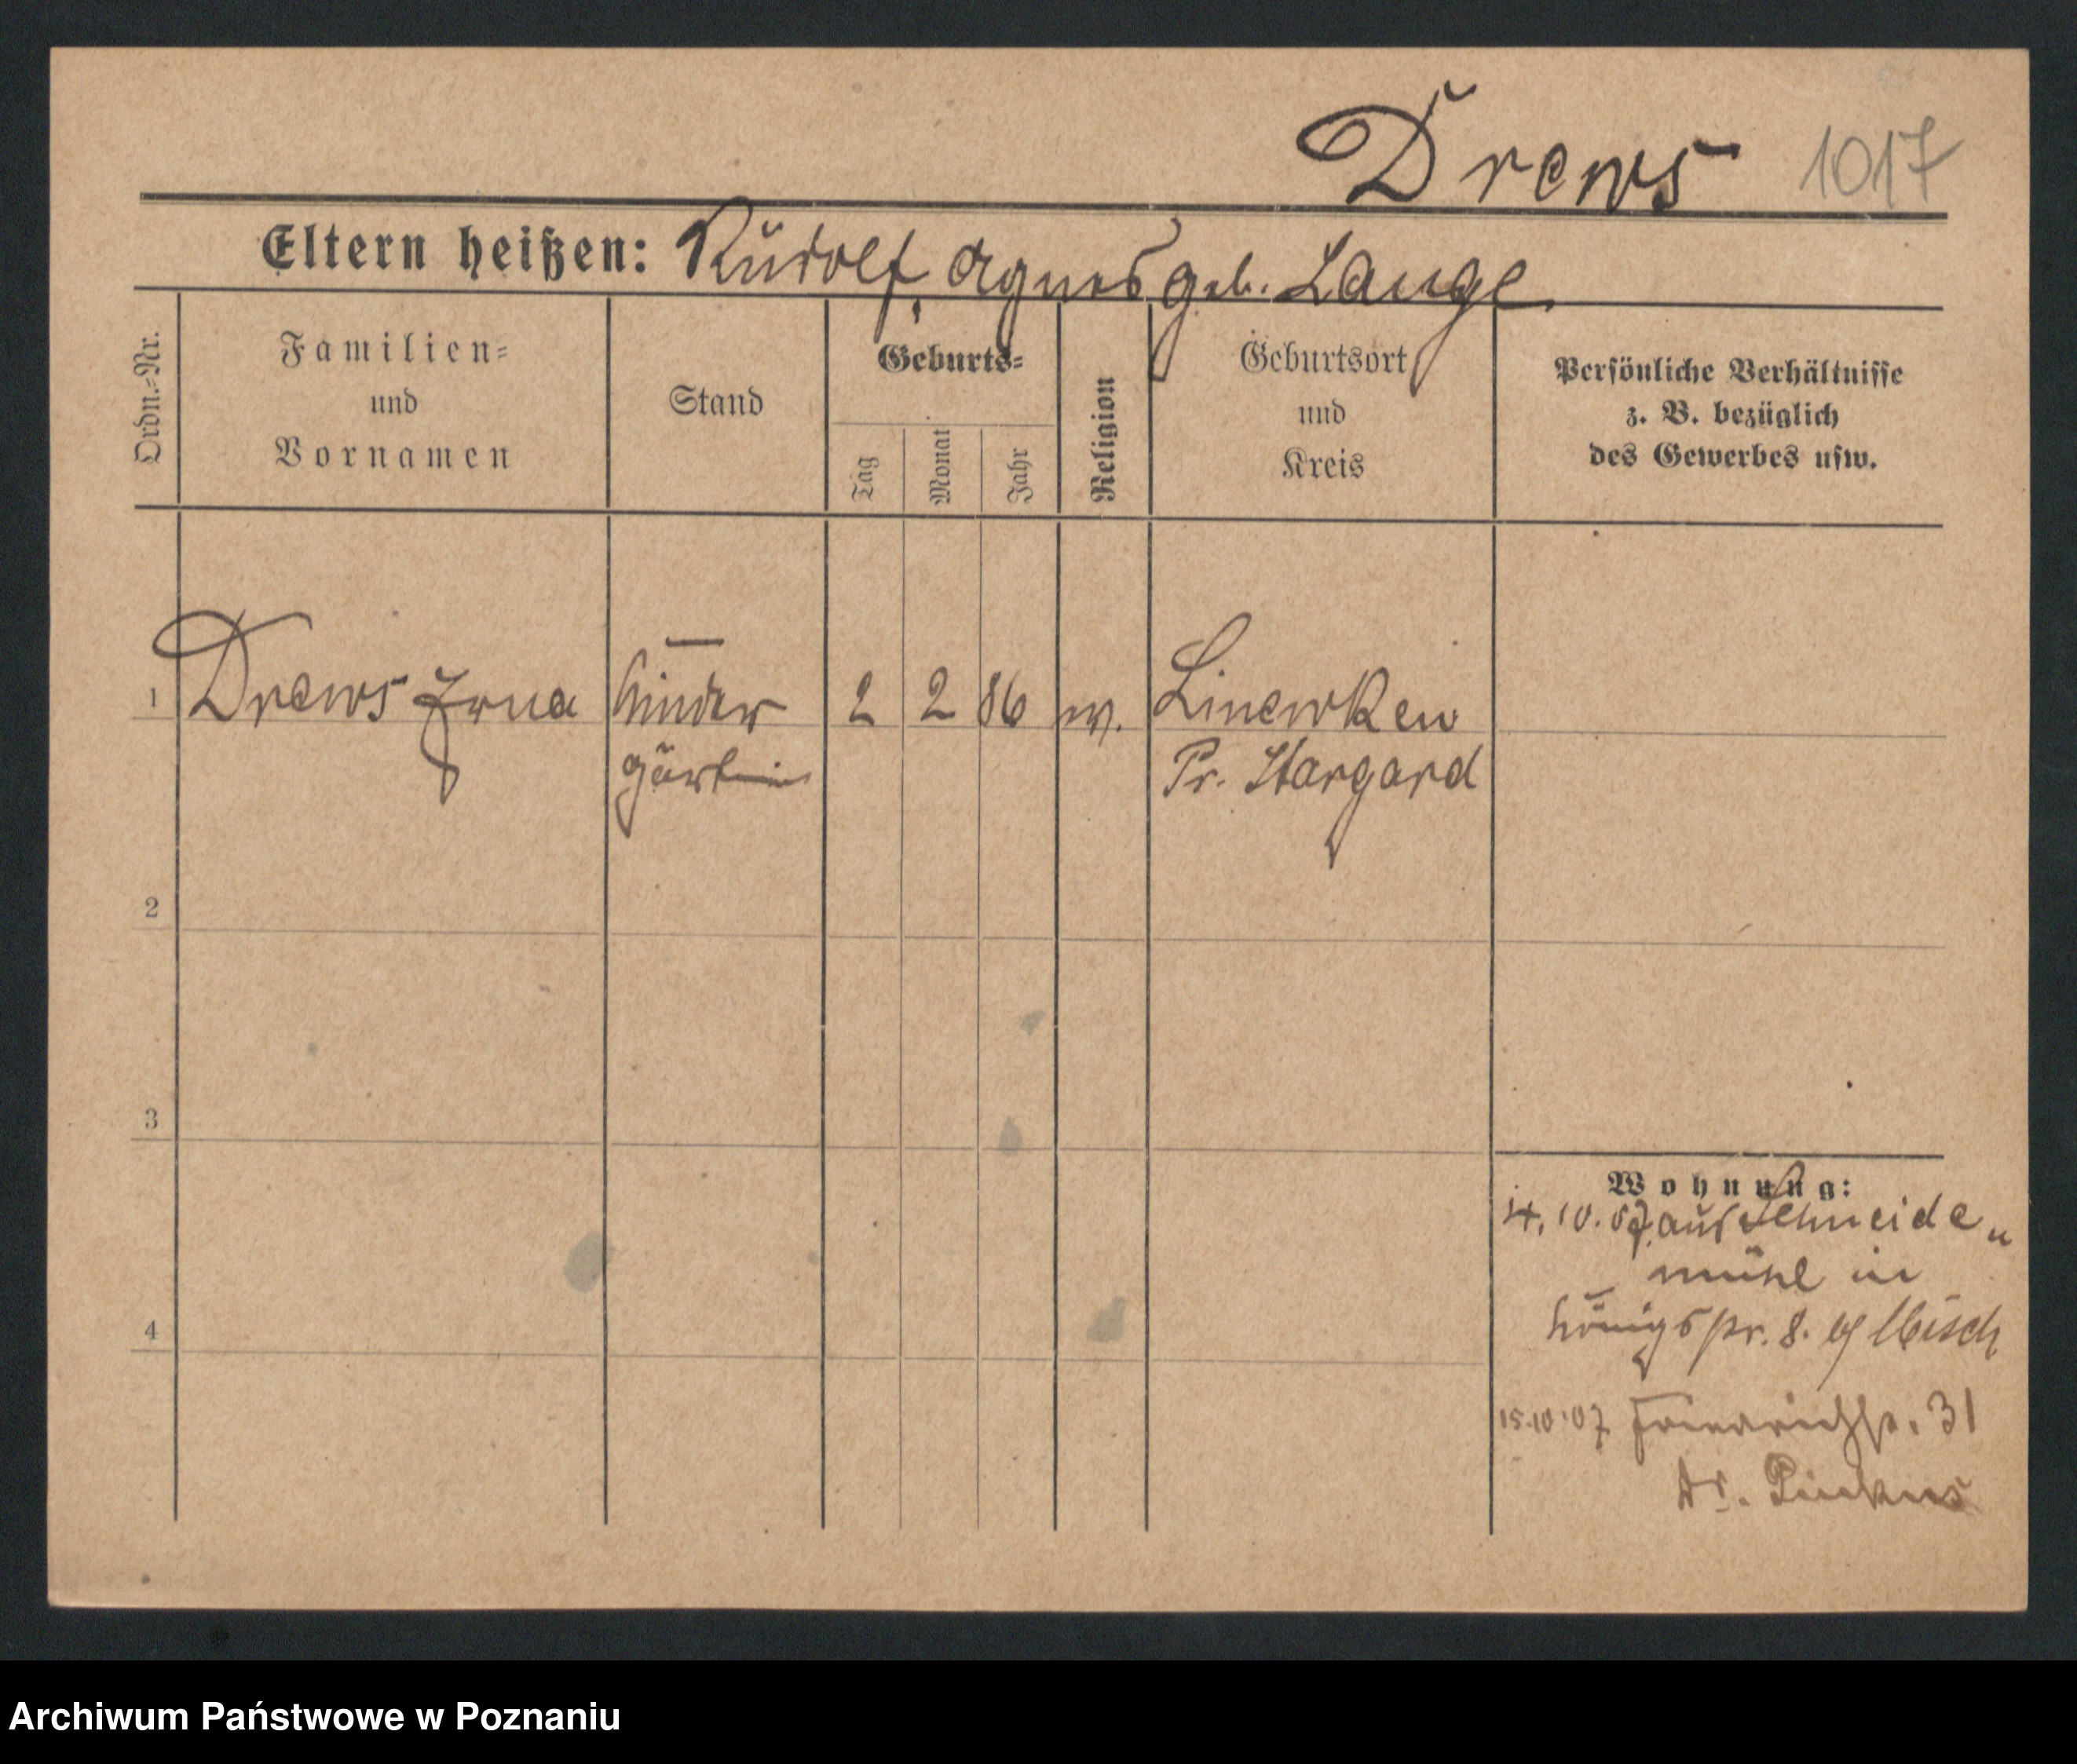 Drews 1017
Eltern heißen: Rudolf, Agnes geb. Lange
Ordn.-Nr.
Familien-
und
Vornamen
Stand
Geburts-
Tag
Monat
Jahr
Religion
Geburtsort
und
Kreis
Persönliche Verhältnisse
z. B. bezüglich
des Gewerbes usw.
1 Drews Erna Kinder 2 2 86 Linewken
gärtnerin Pr. Stargard
2
3
4
Wohnung:
4.10.07 aus Schneide
mühl in
Königspl. 8.
15.10.07 Friedrichstr. 31
Dr. Pinkus
Archiwum Państwowe w Poznaniu